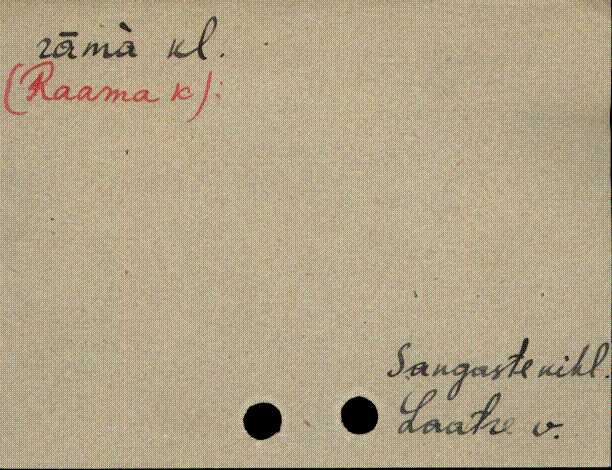 rāmà kl.
(Raama k):
Sangaste kihl.
Laatre v.